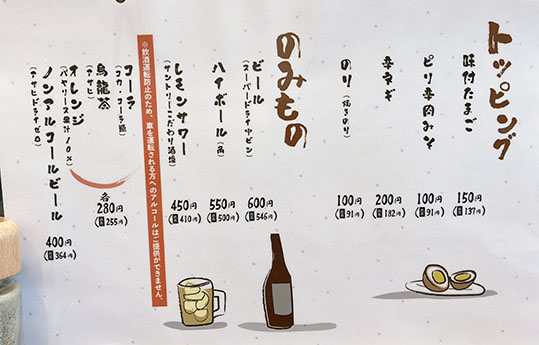 トッピング
味付たまご
150円
(税抜137円)
ピリ辛肉みそ
100円
(税抜91円)
辛ネギ
200円
(税抜182円)
のり(焼きのり)
100円
(税抜91円)
のみもの
ビール
(スーパードライ中ビン)
600円
(税抜546円)
ハイボール(角)
550円
(税抜500円)
レモンサワー
(サントリーこだわり酒場)
450円
(税抜410円)
※飲酒運転防止のため、車を運転される方へのアルコールはご提供ができません。
コーラ
(コカ・コーラ瓶)
烏龍茶
(アサヒ)
オレンジ
(バヤリース果汁10%)
各280円
(税抜255円)
ノンアルコールビール
(アサヒドライゼロ)
400円
(税抜364円)